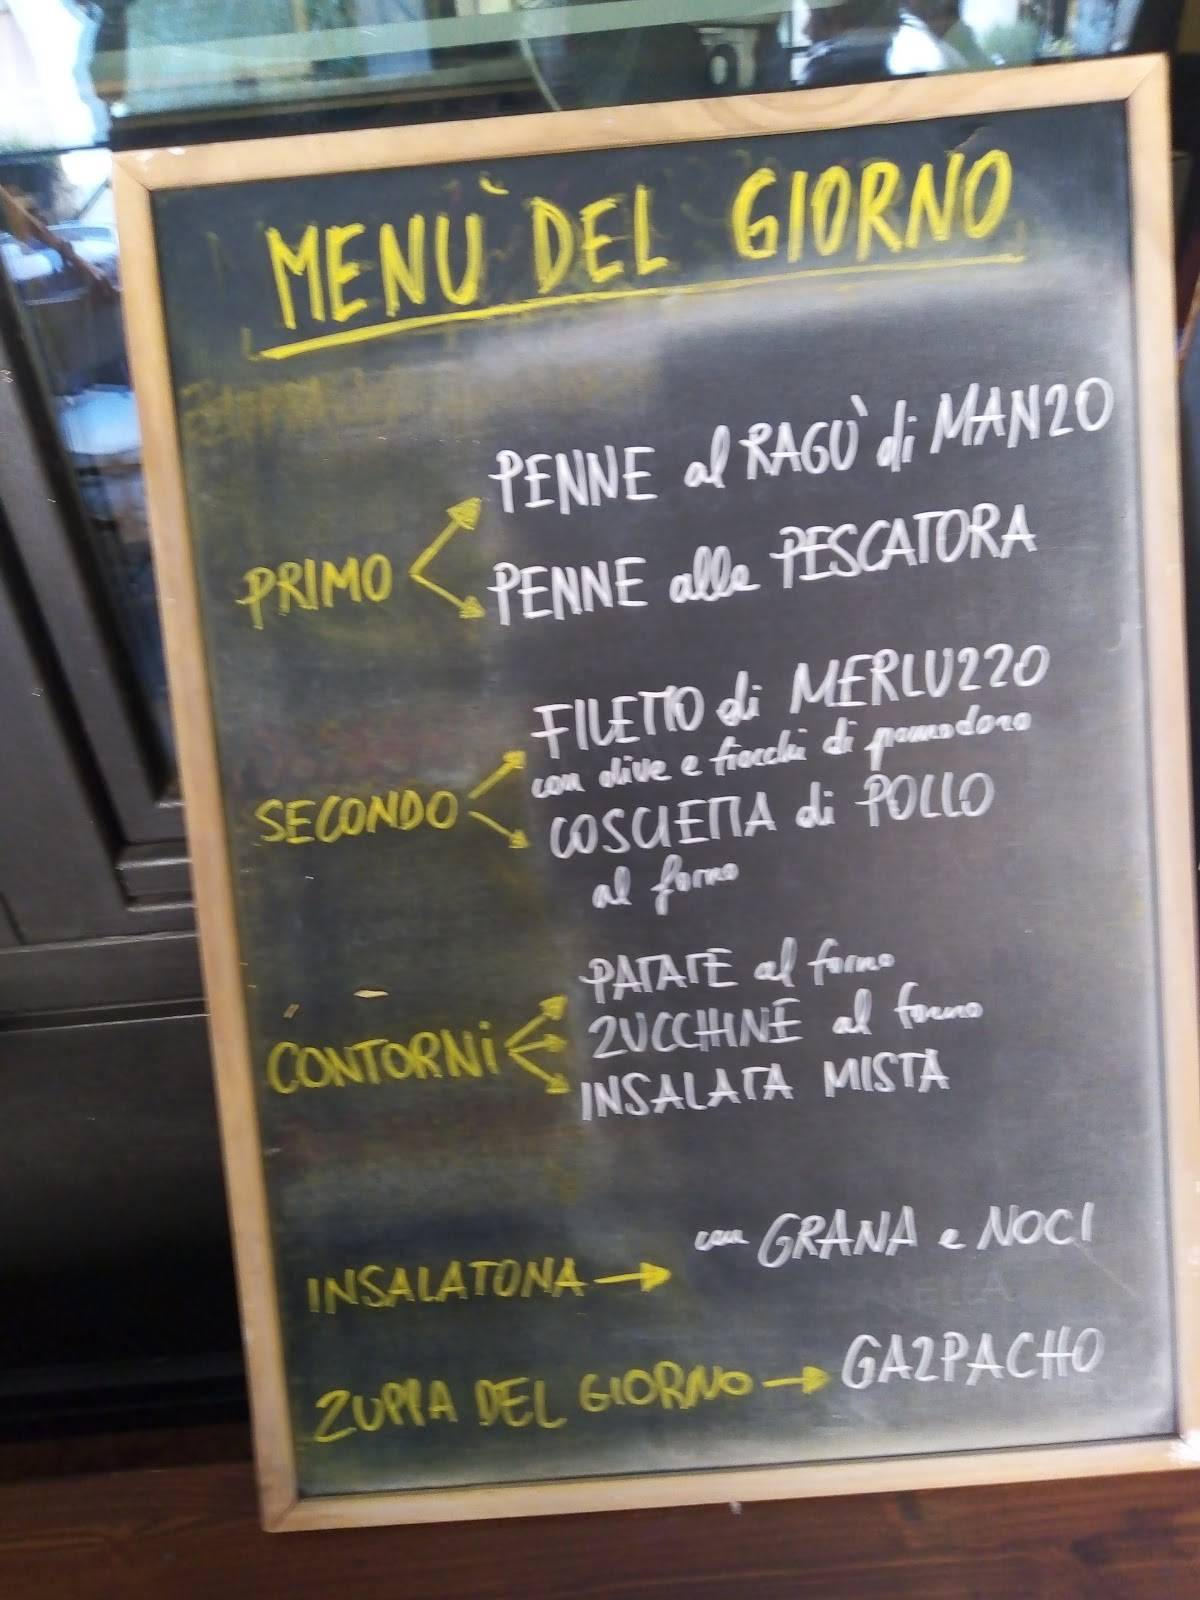 MENÙ DEL GIORNO
PENNE al RAGÙ di MANZO
PRIMO
PENNE alla PESCATORA
FILETTO di MERLUZZO
con olive e fiocchi di pomodoro
SECONDO
COSCIETTA di POLLO
al forno
PATATE al forno
ZUCCHINE al forno
CONTORNI
INSALATA MISTA
INSALATONA → con GRANA e NOCI
ZUPPA DEL GIORNO → GAZPACHO